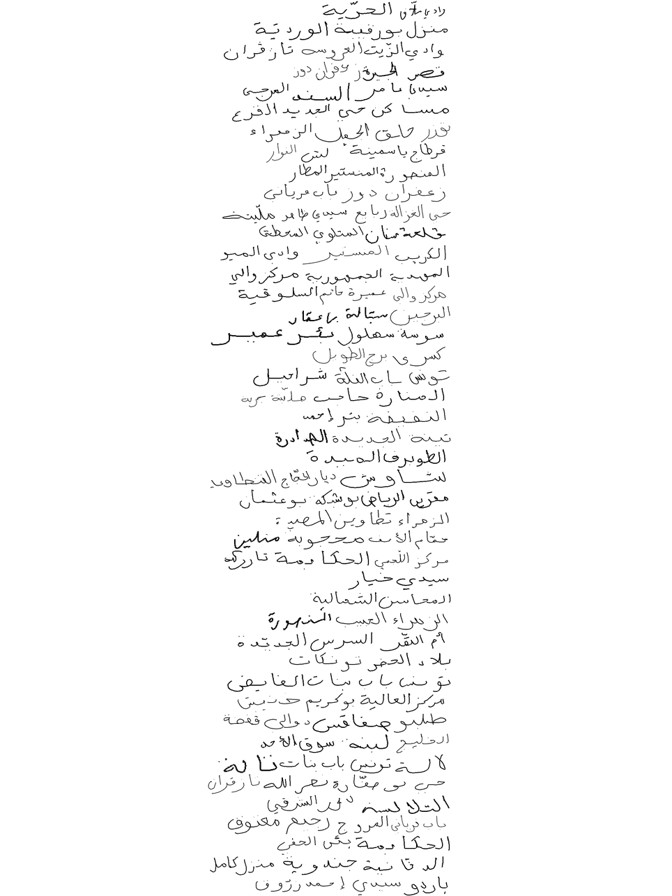 وادي ملاق الحرّية
منزل بورقيبة الوردية
وادي الزيت العروسة تازغران
قصر الجوز زعفران دوز
سيدي عامر السند العرجي
مساكن حي الحديد القرع
نقرر حلق الجمل الزهراء
قرطاج ياسمينة لش النوار
المنصورة المنستير المطار
زعفران دوز باب قرباني
حي الغزالة ربايع سيدي طاهر مليتة
قلعة سنان المتلوي المحطة
الكريب المنستير وادي الميو
المهدية الجمهورية مركز والي
مركز والي عميرة حاتم السلوقية
البرجين سبالة بن عمار
سوسة سهلول بئر عمير
كسرى برج الطويل
تونس باب العلة شراحيل
المنارة حاجب ملاتة جربة
النفيضة بئر إحمد
تبينة الجديدة الهدادرة
الطويرف الميدة
لشاوش ديار الحجاج القطاوير
مقرين الرياض بوشبكة بوعثمان
الزهراء تطاوين المصبة
مقام الأب محجوبة منلين
مركز اللعبي الحكادمة تازركة
سيدي خيار
المحاسن الشمالية
الزهراء العيب المنهورة
أم النقر السرس الجديدة
بلاد الحضر نونكات
تونس باب بنات الفايضي
مركز العالية بوكريم حنيش
طلبو صفاقس دوالي قفصة
الخليج لبنة سوق الأحد
لالة تونس باب بنات تالة
حي بوصفارة نصر الله تازغران
الثلالسة الشرقي
باب قرباني المروج رجيم معتوق
الحكادمة بئر الحفي
الدقانية جندوبة منزل كامل
باردو سيدي إحمد زروق